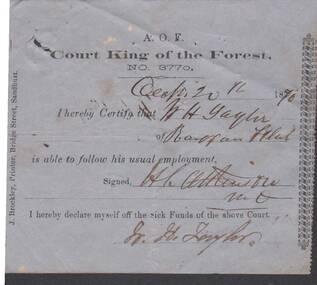 A. O. F.
Court King of the Forest,
NO. 3770.
20th 1870
I hereby Certify that W H Taylor
of
is able to follow his usual employment,
Signed, H L Atkinson
I hereby declare myself off the sick Funds of the above Court.
W. H. Taylor.
J. Brockley, Printer, Bridge Street, Sandhurst.